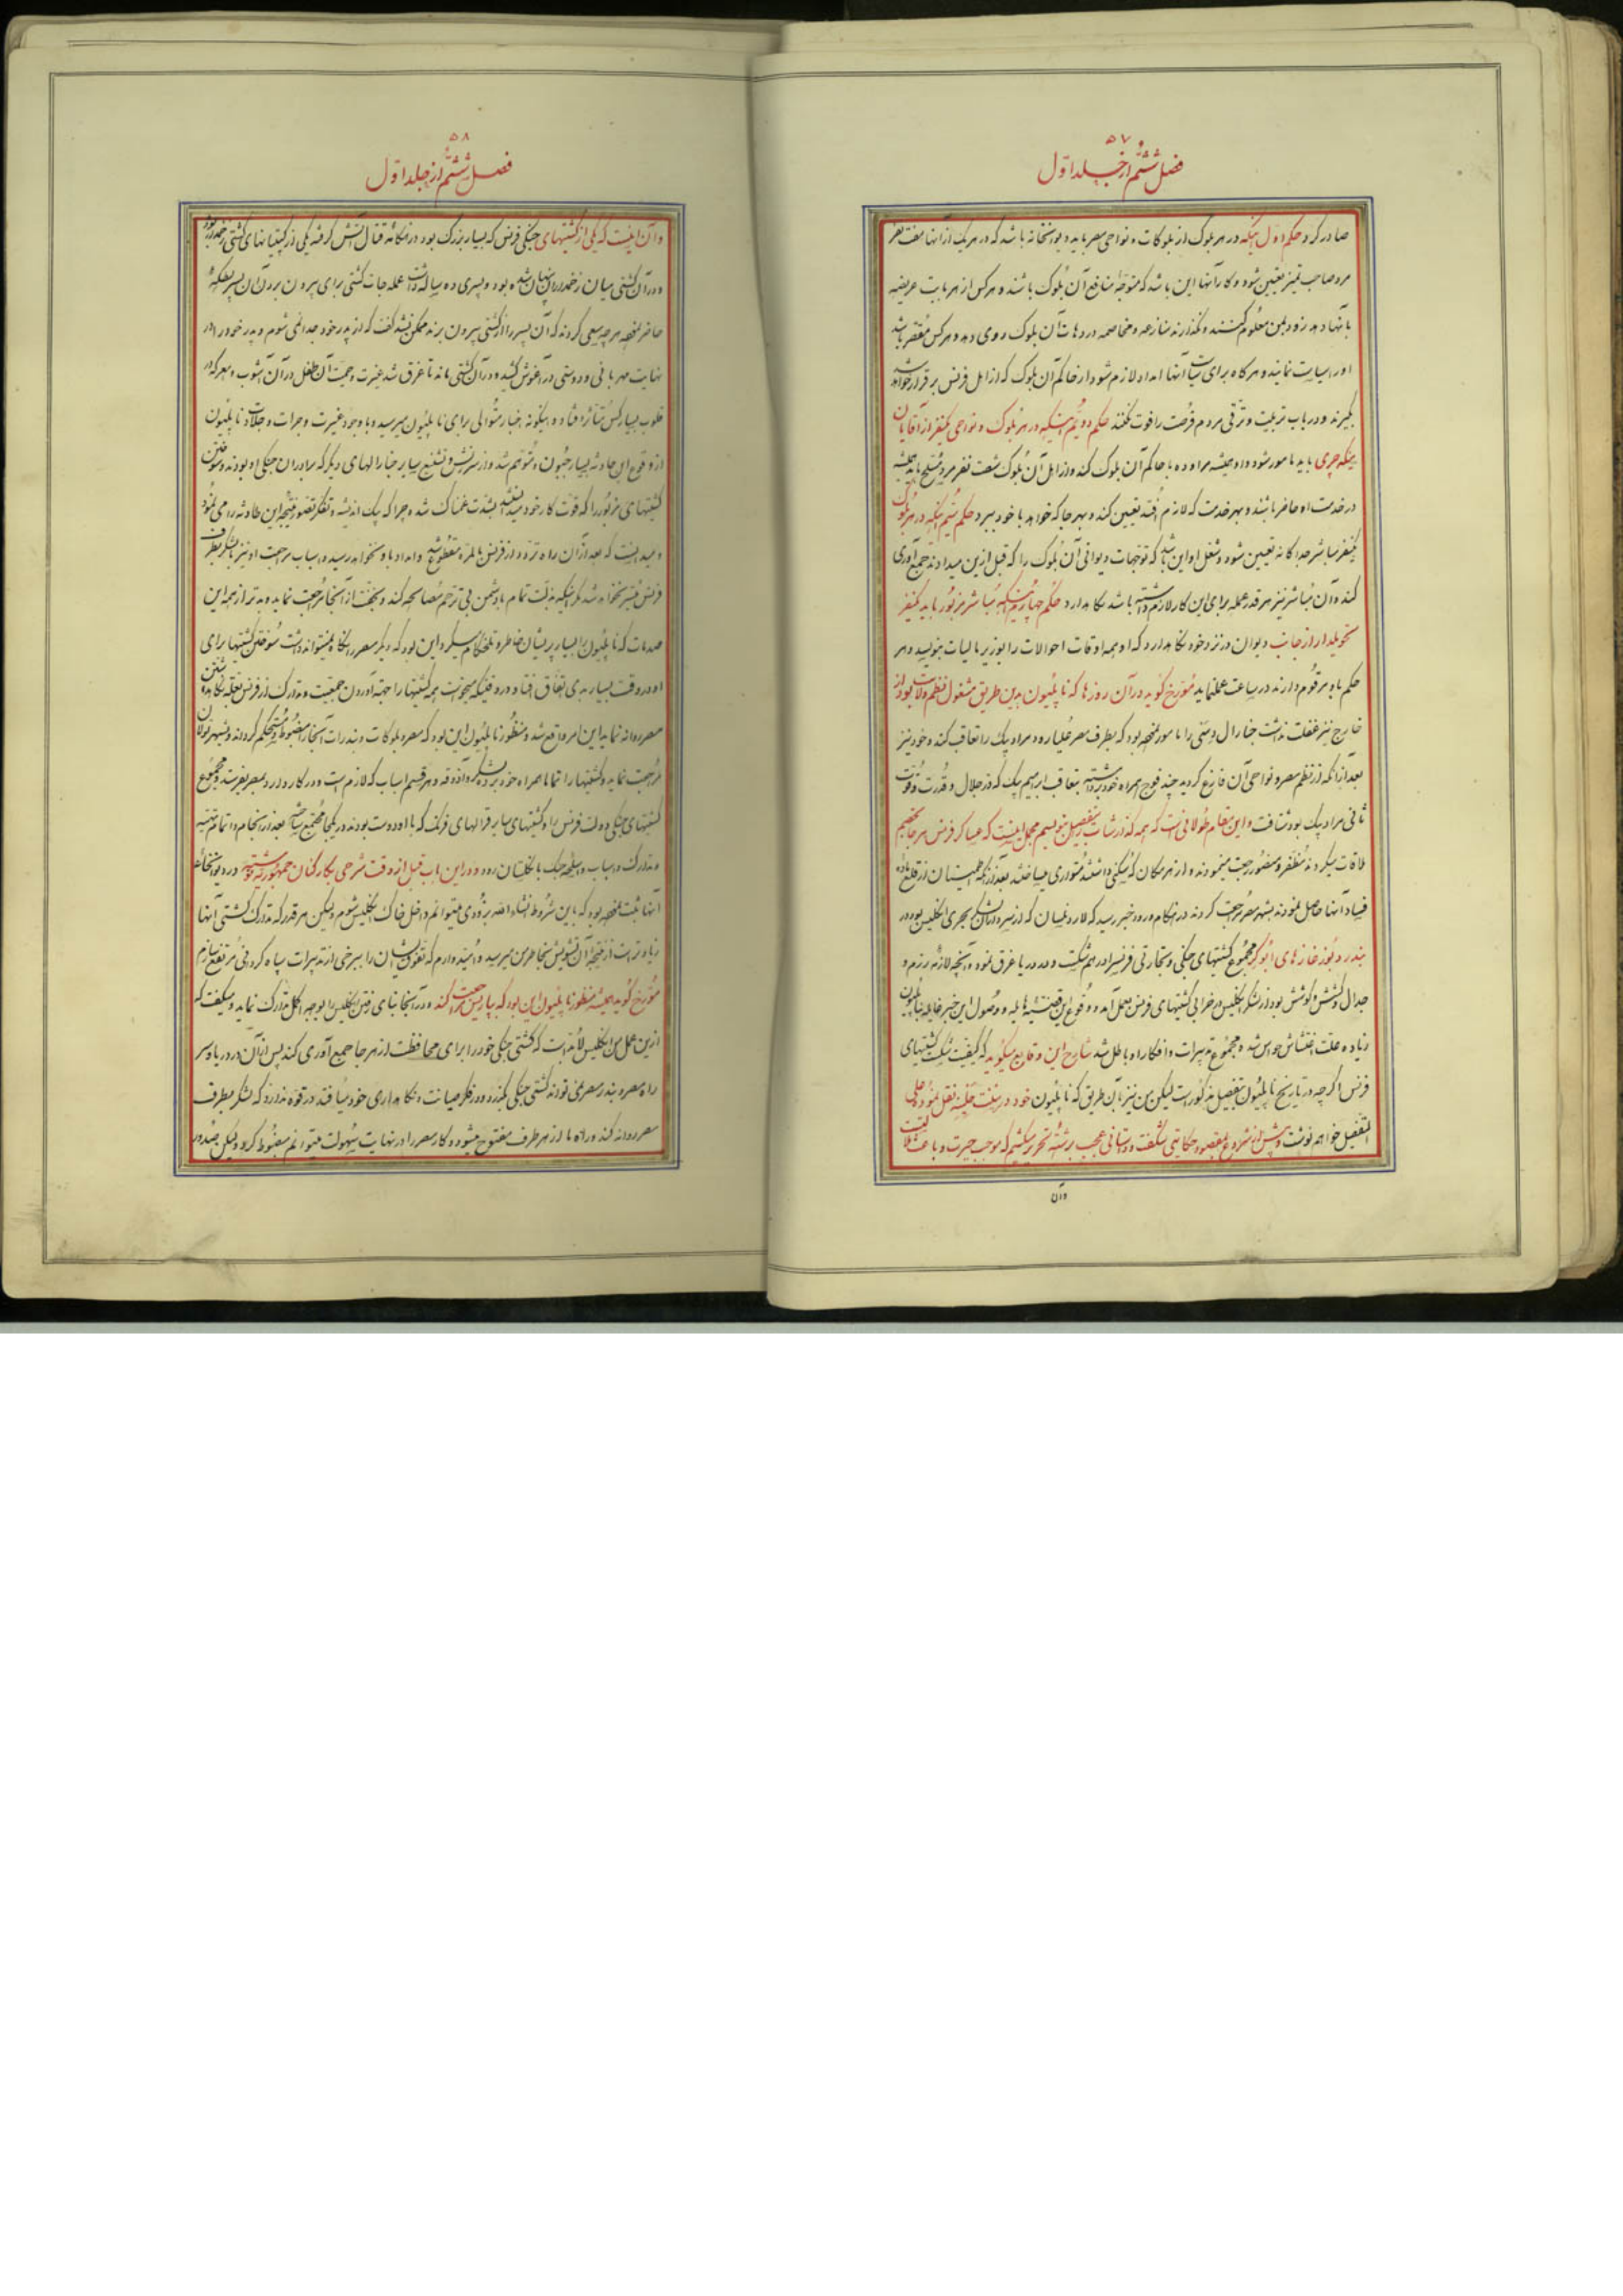 ۵۷
فصل ششم از جلد اول
صادر کرد حکم اول اینکه در هر بلوک از بلوکات و نواحی مصر باید دیوانخانه باشد که در هر یک از آنها هفت نفر
مرد صاحب تمیز تعیین شود و کار آنها این باشد که متوجه منافع آن بلوک باشند و هر کس از هر بابت عریضه
بآنها دهد زود بمن معلوم کنند و نگذارند منازعه و مخاصمه در دهات آن بلوک روی دهد و هر کس مقصر باشد
او را سیاست نمایند و هرگاه برای سیاست آنها امداد لازم شود از حاکم آن بلوک که از اهل فرنس برقرار خواهد شد
بگیرند و در باب تربیت و ترقی مردم فرصت را فوت نکنند حکم دویم اینکه در هر بلوک و نواحی یکنفر از آقایان
ینکچری باید مامور شود و او همیشه مراوده با حاکم آن بلوک کند و از اهل آن بلوک شصت نفر مرد مسلح باید همیشه
در خدمت او حاضر باشند و بهر خدمت که لازم افتد تعیین کند و بهر جا که خواهد با خود ببرد حکم سیم اینکه در هر بلوک
یکنفر مباشر جداگانه تعیین شود و شغل او این باشد که توجهات دیوانی آن بلوک را که قبل ازین میدادند جمع آوری
کند و آن مباشر نیز هر قدر عمله برای این کار لازم داشته باشد نگاه دارد حکم چهارم اینکه مباشر مزبور باید یکنفر
تحویلدار از جانب دیوان در نزد خود نگاه دارد که او همه اوقات احوالات را بوزیر مالیات بنویسد و هر
حکم باو مرقوم دارند در ساعت عمل نماید مورخ گوید در آن روزها که ناپلیون بدین طریق مشغول نظم ولایت بود از
خارج نیز غفلت نداشت جنارال دسی را مامور نموده بود که بطرف مصر علیا رود و مراد بیک را تعاقب کند و خود نیز
بعد از آنکه از نظم مصر و نواحی آن فارغ گردید چند فوج همراه خود برداشته بتعاقب ابراهیم بیک که در جلال و قدرت و قوت
ثانی مراد بیک بود شتافت و این مقام طولانی است که همه گذارشات را بتفصیل بنویسیم مجمل اینست که عساکر فرنس هر جا بخصم
ملاقات میکردند مظفر و منصور رجعت مینمودند و از هر مکان که سکنی داشتند متواری میساختند بعد از آنکه اطمینان از قلع ماده
فساد آنها حاصل نمودند بشهر مصر رجعت کردند در هنگام ورود خبر رسید که لارد نلسان که از سرداران لشکر بحری انگلیس بود در
بندر بوغازهای ابوکر مجموع کشتیهای جنگی و تجارتی فرنسرا در هم شکست و در دریا غرق نمود و آنچه لازمه رزم و
جدال و کشش و کوشش بود از لشکر انگلیس در خرابی کشتیهای فرنس بعمل آمد و وقوع این قضیه هایله و وصول این خبر هایله بناپلیون
زیاده علت اغتشاش حواس شد و مجموع تدبیرات و افکار او باطل شد شارح این وقایع میگوید که کیفیت شکست کشتیهای
فرنس اگر چه در تاریخ ناپلیون بتفصیل مذکور است لیکن من نیز بآن طریق که ناپلیون خود در سنت هلینه نقل نمود
بتفصیل خواهم نوشت و پیش از شروع بمقصود حکایتی شگفت و داستانی عجب برشته تحریر میکشیم که موجب حیرت و باعث
وآن
۵۸
فصل ششم از جلد اول
و آن اینست که یکی از کشتیهای جنگی فرنس که بسیار بزرگ بود در هنگامه قتال آتش گرفته یکی از کپیتانهای کشتی زخمدار بود
و در آن کشتی میان زخمداران پنهان شده بود و پسری ده ساله داشت عمله جات کشتی برای بیرون بردن آن پسر بعرشه
حاضر شده هر چه سعی کردند که آن پسر را از کشتی بیرون برند ممکن نشد گفت که از پدر خود جدا نمی شوم و پدر خود را در
نهایت مهربانی و دوستی در آغوش کشید و در آن کشتی ماند تا غرق شد غیرت و حمیت آن طفل در آن آشوب و معرکه در
قلوب بسیار کس تاثیر افتاد و اینگونه اخبار متوالی برای ناپلیون میرسید و با وجود غیرت و جرات و جلادت ناپلیون
از وقوع این حادثه بسیار محزون و متوهم شد و از سرزنش و تشنیع سایر جنارالهای دیگر که برادران جنگی او بودند و سوختن
کشتیهای مزبور را که قوت کار خود میدانستند بشدت غمناک شد و چرا که بیک اندیشه و تفکر تصور نتیجه این حادثه را می نمود
و میدانست که بعد از آن راه تردد از فرنس بالمره مقطوع شد و امداد باو نخواهد رسید و اسباب مراجعت او نیز با لشکر بطرف
فرنس میسر نخواهد شد مگر اینکه بذلت تمام با دشمن بی ترحم مصالحه کند و بخفت از آنجا مراجعت نماید و بدتر از همه این
صدمات که ناپلیون را بسیار پریشان خاطر و تلخکام میکرد این بود که دیگر مصر را نگاه نمیتواند داشت سوختن کشتیها برای
او در وقت بسیار بدی اتفاق افتاد و در وقتیکه میخواست همه کشتیها را جهت آوردن جمعیت و تدارک از فرنس بقلعه نگاه داشتن
مصر روانه نماید این امر واقع شد و منظور ناپلیون این بود که مصر و بلوکات و بندرات آنجا را مضبوط و مستحکم کرده و بشهر تولان
مراجعت نماید و کشتیها را تماما همراه خود برده و لشکر و آذوقه و هر قسم اسباب که لازم است و در کار دارد بمصر بفرستد و مجموع
کشتیهای جنگی دولت فرنس را و کشتیهای سایر قرالهای فرنگ که با او دوست بودند در یکجا مجتمع ساخته بعد از انجام و اتمام تهیه
و تدارک و اسباب و اسلحه جنگ بانگلستان رود و در این باب قبل از وقت شرحی بکارکنان جمهوریه نوشته و در دیوانخانه
آنها ثبت شده بود که باین شروط انشاء الله بزودی میتوانم داخل خاک انگلیس شوم ولیکن هر قدر که تدارک کشتی آنها
زیاده تر است از نتیجه آن تشویش بخاطر من میرسد و امیدوارم که تفوق ایشان را ببرخی از تدبیرات سپاه گردونی مرتفع سازم
مورخ گوید همیشه منظور ناپلیون این بود که بپاریس مراجعت کند و در آنجا بنای رفتن انگلیس را بوجه اکمل تدارک نماید و میگفت که
ازین عمل من انگلیس لابد است که کشتی جنگی خود را برای محافظت از هر جا جمع آوری کند پس از آن در دریا و سر
راه مصر و بندر مصری نتواند کشتی جنگی بگذرد و در فکر صیانت و نگاهداری خود میافتد در قوه ندارد که لشکر بطرف
مصر روانه کند و راه ما از هر طرف مفتوح میشود و کار مصر را در نهایت سهولت میتوانم مضبوط کرد ولیکن